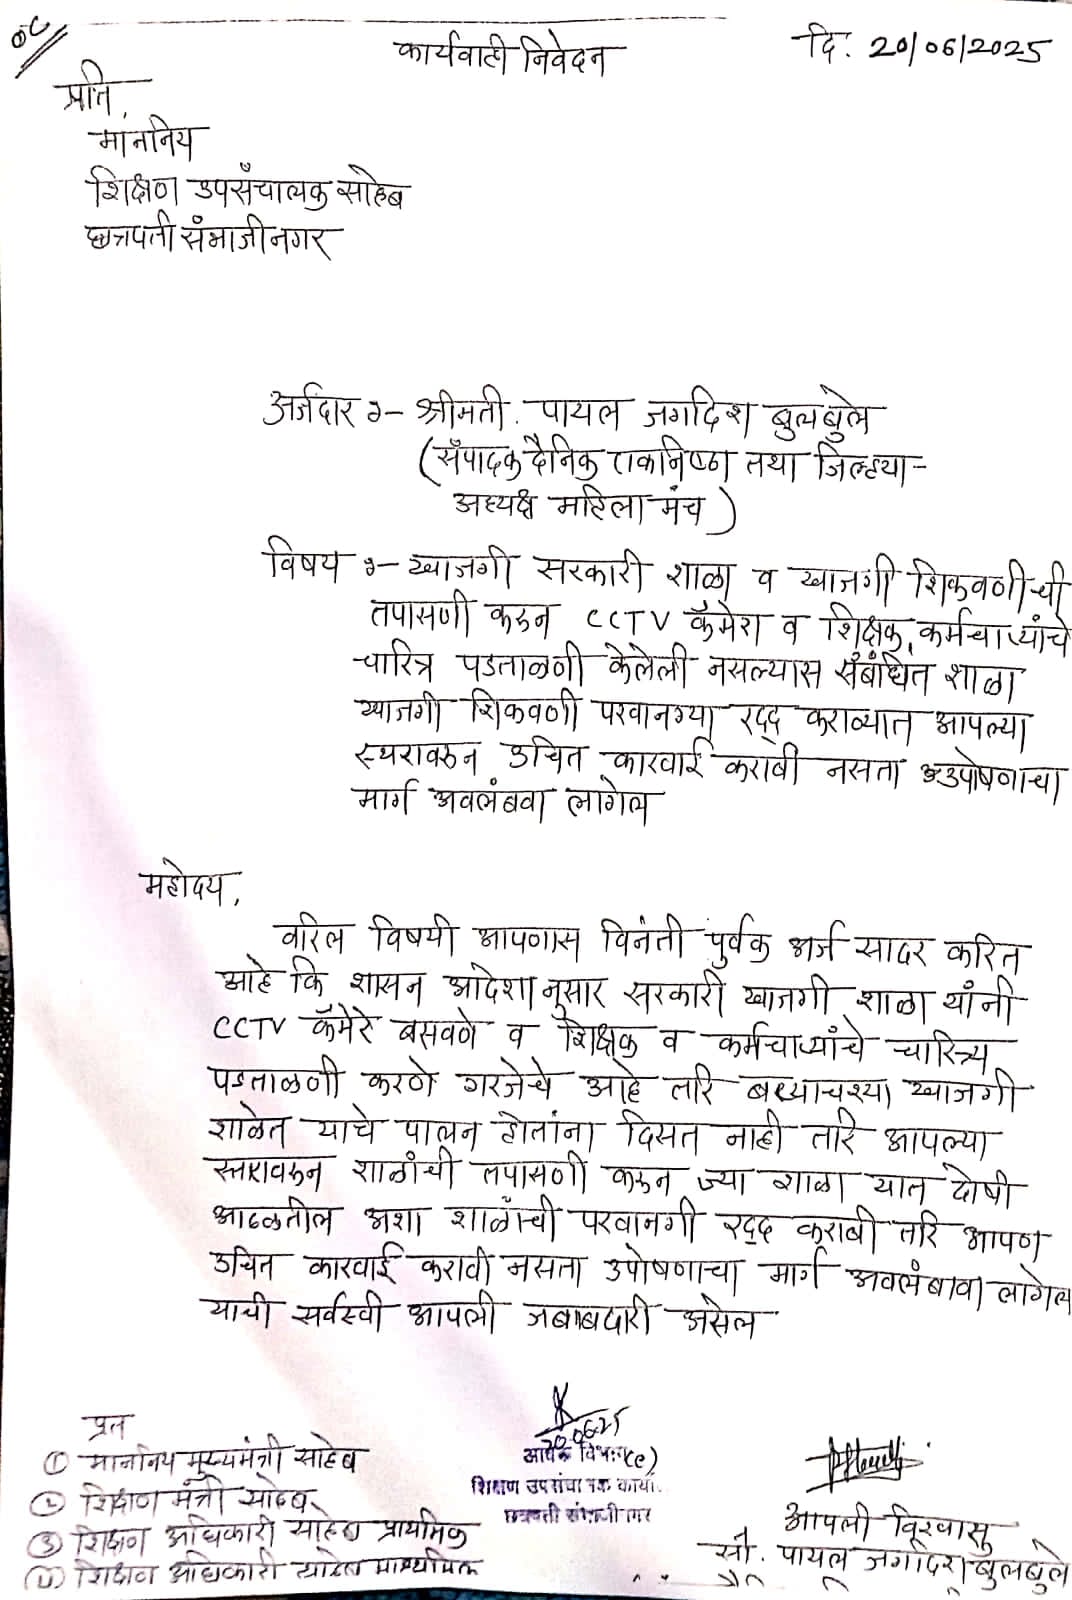 OC
कार्यवाही निवेदन
दि. 20/06/2025
प्रति,
माननिय
शिक्षण उपसंचालक साहेब
छत्रपती संभाजीनगर
अर्जदार :- श्रीमती. पायल जगदिश बुलबुले
(संपादक दैनिक एकनिष्ठा तथा जिल्हया-
अध्यक्ष महिला मंच)
विषय :- खाजगी सरकारी शाळा व खाजगी शिकवणीची
तपासणी करुन CCTV कॅमेरा व शिक्षक, कर्मचाऱ्यांचे
चारित्र पडताळणी केलेली नसल्यास संबंधित शाळा
खाजगी शिकवणी परवानग्या रद्द कराव्यात आपल्या
स्थरावरुन उचित कारवाई करावी नसता उपोषणाचा
मार्ग अवलंबवा लागेल
महोदय,
वरिल विषयी आपणास विनंती पुर्वक अर्ज सादर करित
आहे कि शासन आदेशानुसार सरकारी खाजगी शाळा यांनी
CCTV कॅमेरे बसवणे व शिक्षक व कर्मचाऱ्यांचे चारित्र्य
पडताळणी करणे गरजेचे आहे तरि बऱ्याचश्या खाजगी
शाळेत याचे पालन होतांना दिसत नाही तरि आपल्या
स्तरावरुन शाळांची तपासणी करुन ज्या शाळा यात दोषी
आढळतील अशा शाळांची परवानगी रद्द करावी तरि आपण
उचित कारवाई करावी नसता उपोषणाचा मार्ग अवलंबावा लागेल
याची सर्वस्वी आपली जबाबदारी असेल
प्रत
① माननिय मुख्यमंत्री साहेब
② शिक्षण मंत्री साहेब
③ शिक्षण अधिकारी साहेब प्राथमिक
④ शिक्षण अधिकारी साहेब माध्यमिक
20.06.25
आवक विभाग(e)
शिक्षण उपसंचालक कार्या.
छत्रपती संभाजीनगर
आपली विश्वासु
सौ. पायल जगदिश बुलबुले